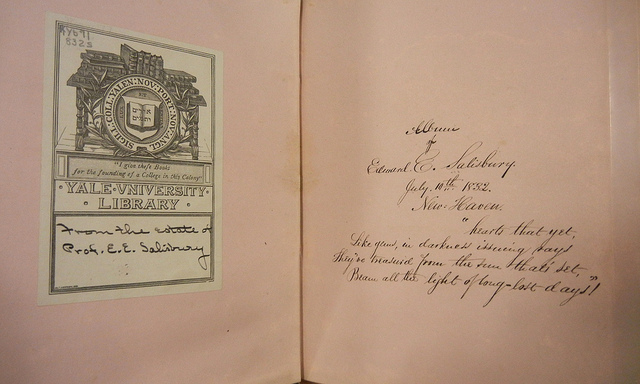 Ky671
832s
SIGILL·COLL·YALEN·NOV·PORT·NOV·ANGL
"I give these Books
for the founding of a College in this Colony"
·YALE·UNIVERSITY·
·LIBRARY·
From the estate of
Prof. E. E. Salisbury
Album
of
Edward E. Salisbury.
July. 10th 1832.
New-Haven.
"hearts that yet,
Like gems, in darkness issuing rays
They've treasured from the sun that's set,
Beam all the light of long-lost days!"